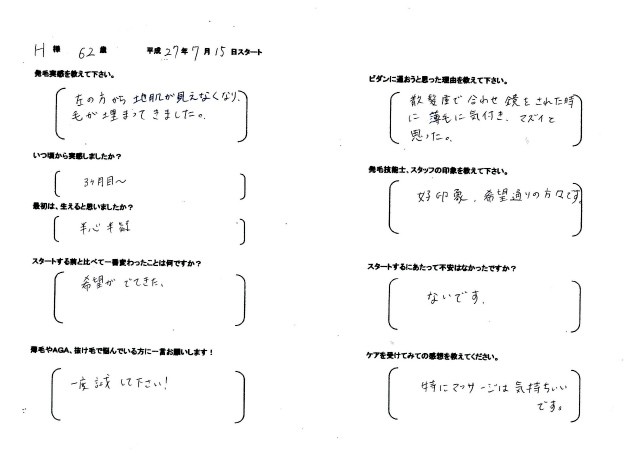 H 様 62歳 平成27年7月15日スタート
発毛実感を教えて下さい。
左の方から地肌が見えなくなり、
毛が埋まってきました。
いつ頃から実感しましたか?
3ヶ月目〜
最初は、生えると思いましたか?
半心半疑
スタートする前と比べて一番変わったことは何ですか?
希望がでてきた、
薄毛やAGA、抜け毛で悩んでいる方に一言お願いします!
一度試して下さい!
ピダンに通おうと思った理由を教えて下さい。
散髪屋で合わせ鏡をされた時
に薄毛に気付き、マズイと
思った。
発毛技能士、スタッフの印象を教えて下さい。
好印象、希望通りの方々です
スタートするにあたって不安はなかったですか?
ないです.
ケアを受けてみての感想を教えてください。
特にマッサージは気持ちいい
です。